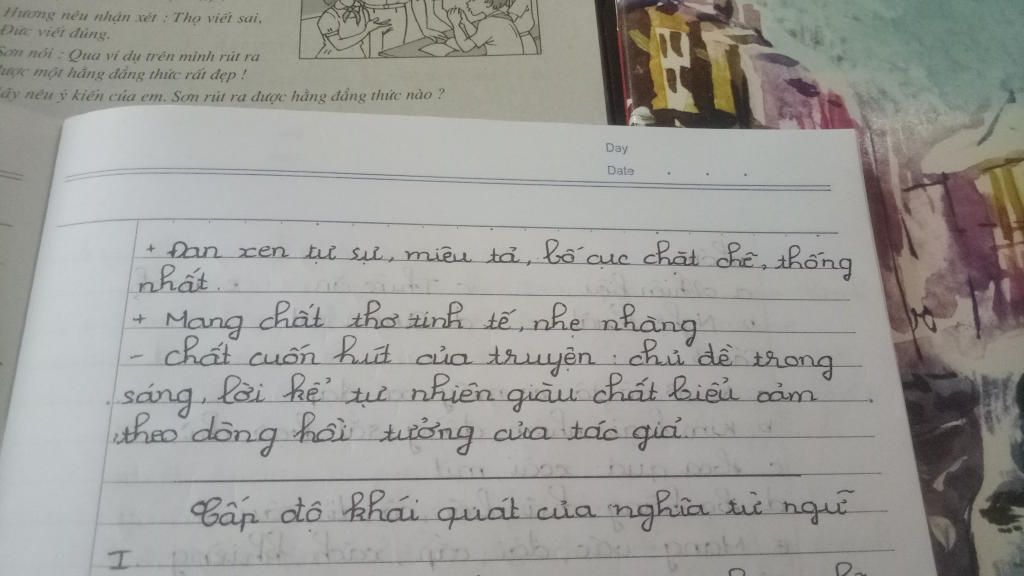 Hương nêu nhận xét : Thọ viết sai,
Đức viết đúng.
Sơn nói : Qua ví dụ trên mình rút ra
được một hằng đẳng thức rất đẹp !
Hãy nêu ý kiến của em. Sơn rút ra được hằng đẳng thức nào ?
Day
Date
+ Đan xen tự sự, miêu tả, bố cục chặt chẽ, thống
nhất.
+ Mang chất thơ tinh tế, nhẹ nhàng
- chất cuốn hút của truyện : chủ đề trong
sáng, lời kể tự nhiên giàu chất biểu cảm
theo dòng hồi tưởng của tác giả.
Cấp độ khái quát của nghĩa từ ngữ
I